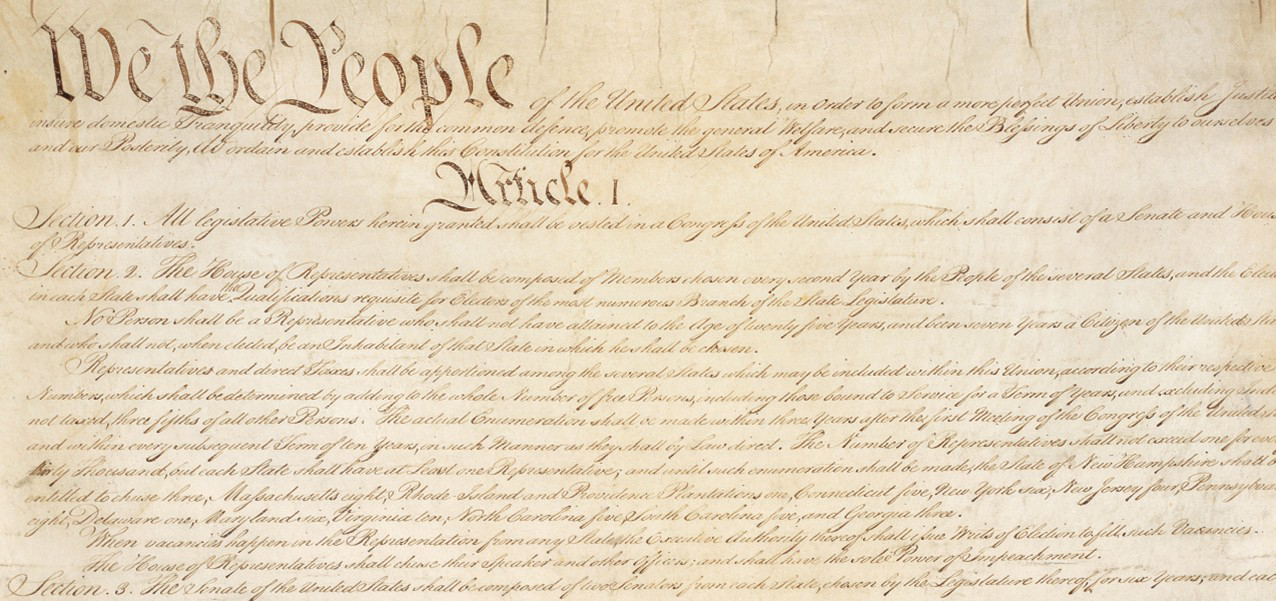 We the People of the United States, in Order to form a more perfect Union, establish Justice
insure domestic Tranquility, provide for the common defence, promote the general Welfare, and secure the Blessings of Liberty to ourselves
and our Posterity, do ordain and establish this Constitution for the United States of America.
Article. I.
Section. 1. All legislative Powers herein granted shall be vested in a Congress of the United States, which shall consist of a Senate and House
of Representatives.
Section. 2. The House of Representatives shall be composed of Members chosen every second Year by the People of the several States, and the Elec
in each State shall have the Qualifications requisite for Electors of the most numerous Branch of the State Legislature.
No Person shall be a Representative who shall not have attained to the Age of twenty five Years, and been seven Years a Citizen of the United Sta
and who shall not, when elected, be an Inhabitant of that State in which he shall be chosen.
Representatives and direct Taxes shall be apportioned among the several States which may be included within this Union, according to their respective
Numbers, which shall be determined by adding to the whole Number of free Persons, including those bound to Service for a Term of Years, and excluding Indi
not taxed, three fifths of all other Persons. The actual Enumeration shall be made within three Years after the first Meeting of the Congress of the United St
and within every subsequent Term of ten Years, in such Manner as they shall by Law direct. The Number of Representatives shall not exceed one for ever
thirty Thousand, but each State shall have at Least one Representative; and until such enumeration shall be made, the State of New Hampshire shall be
entitled to chuse three, Massachusetts eight, Rhode-Island and Providence Plantations one, Connecticut five, New-York six, New Jersey four, Pennsylvan
eight, Delaware one, Maryland six, Virginia ten, North Carolina five, South Carolina five, and Georgia three.
When vacancies happen in the Representation from any State, the Executive Authority thereof shall issue Writs of Election to fill such Vacancies.
The House of Representatives shall chuse their Speaker and other Officers; and shall have the sole Power of Impeachment.
Section. 3. The Senate of the United States shall be composed of two Senators from each State, chosen by the Legislature thereof, for six Years; and eac